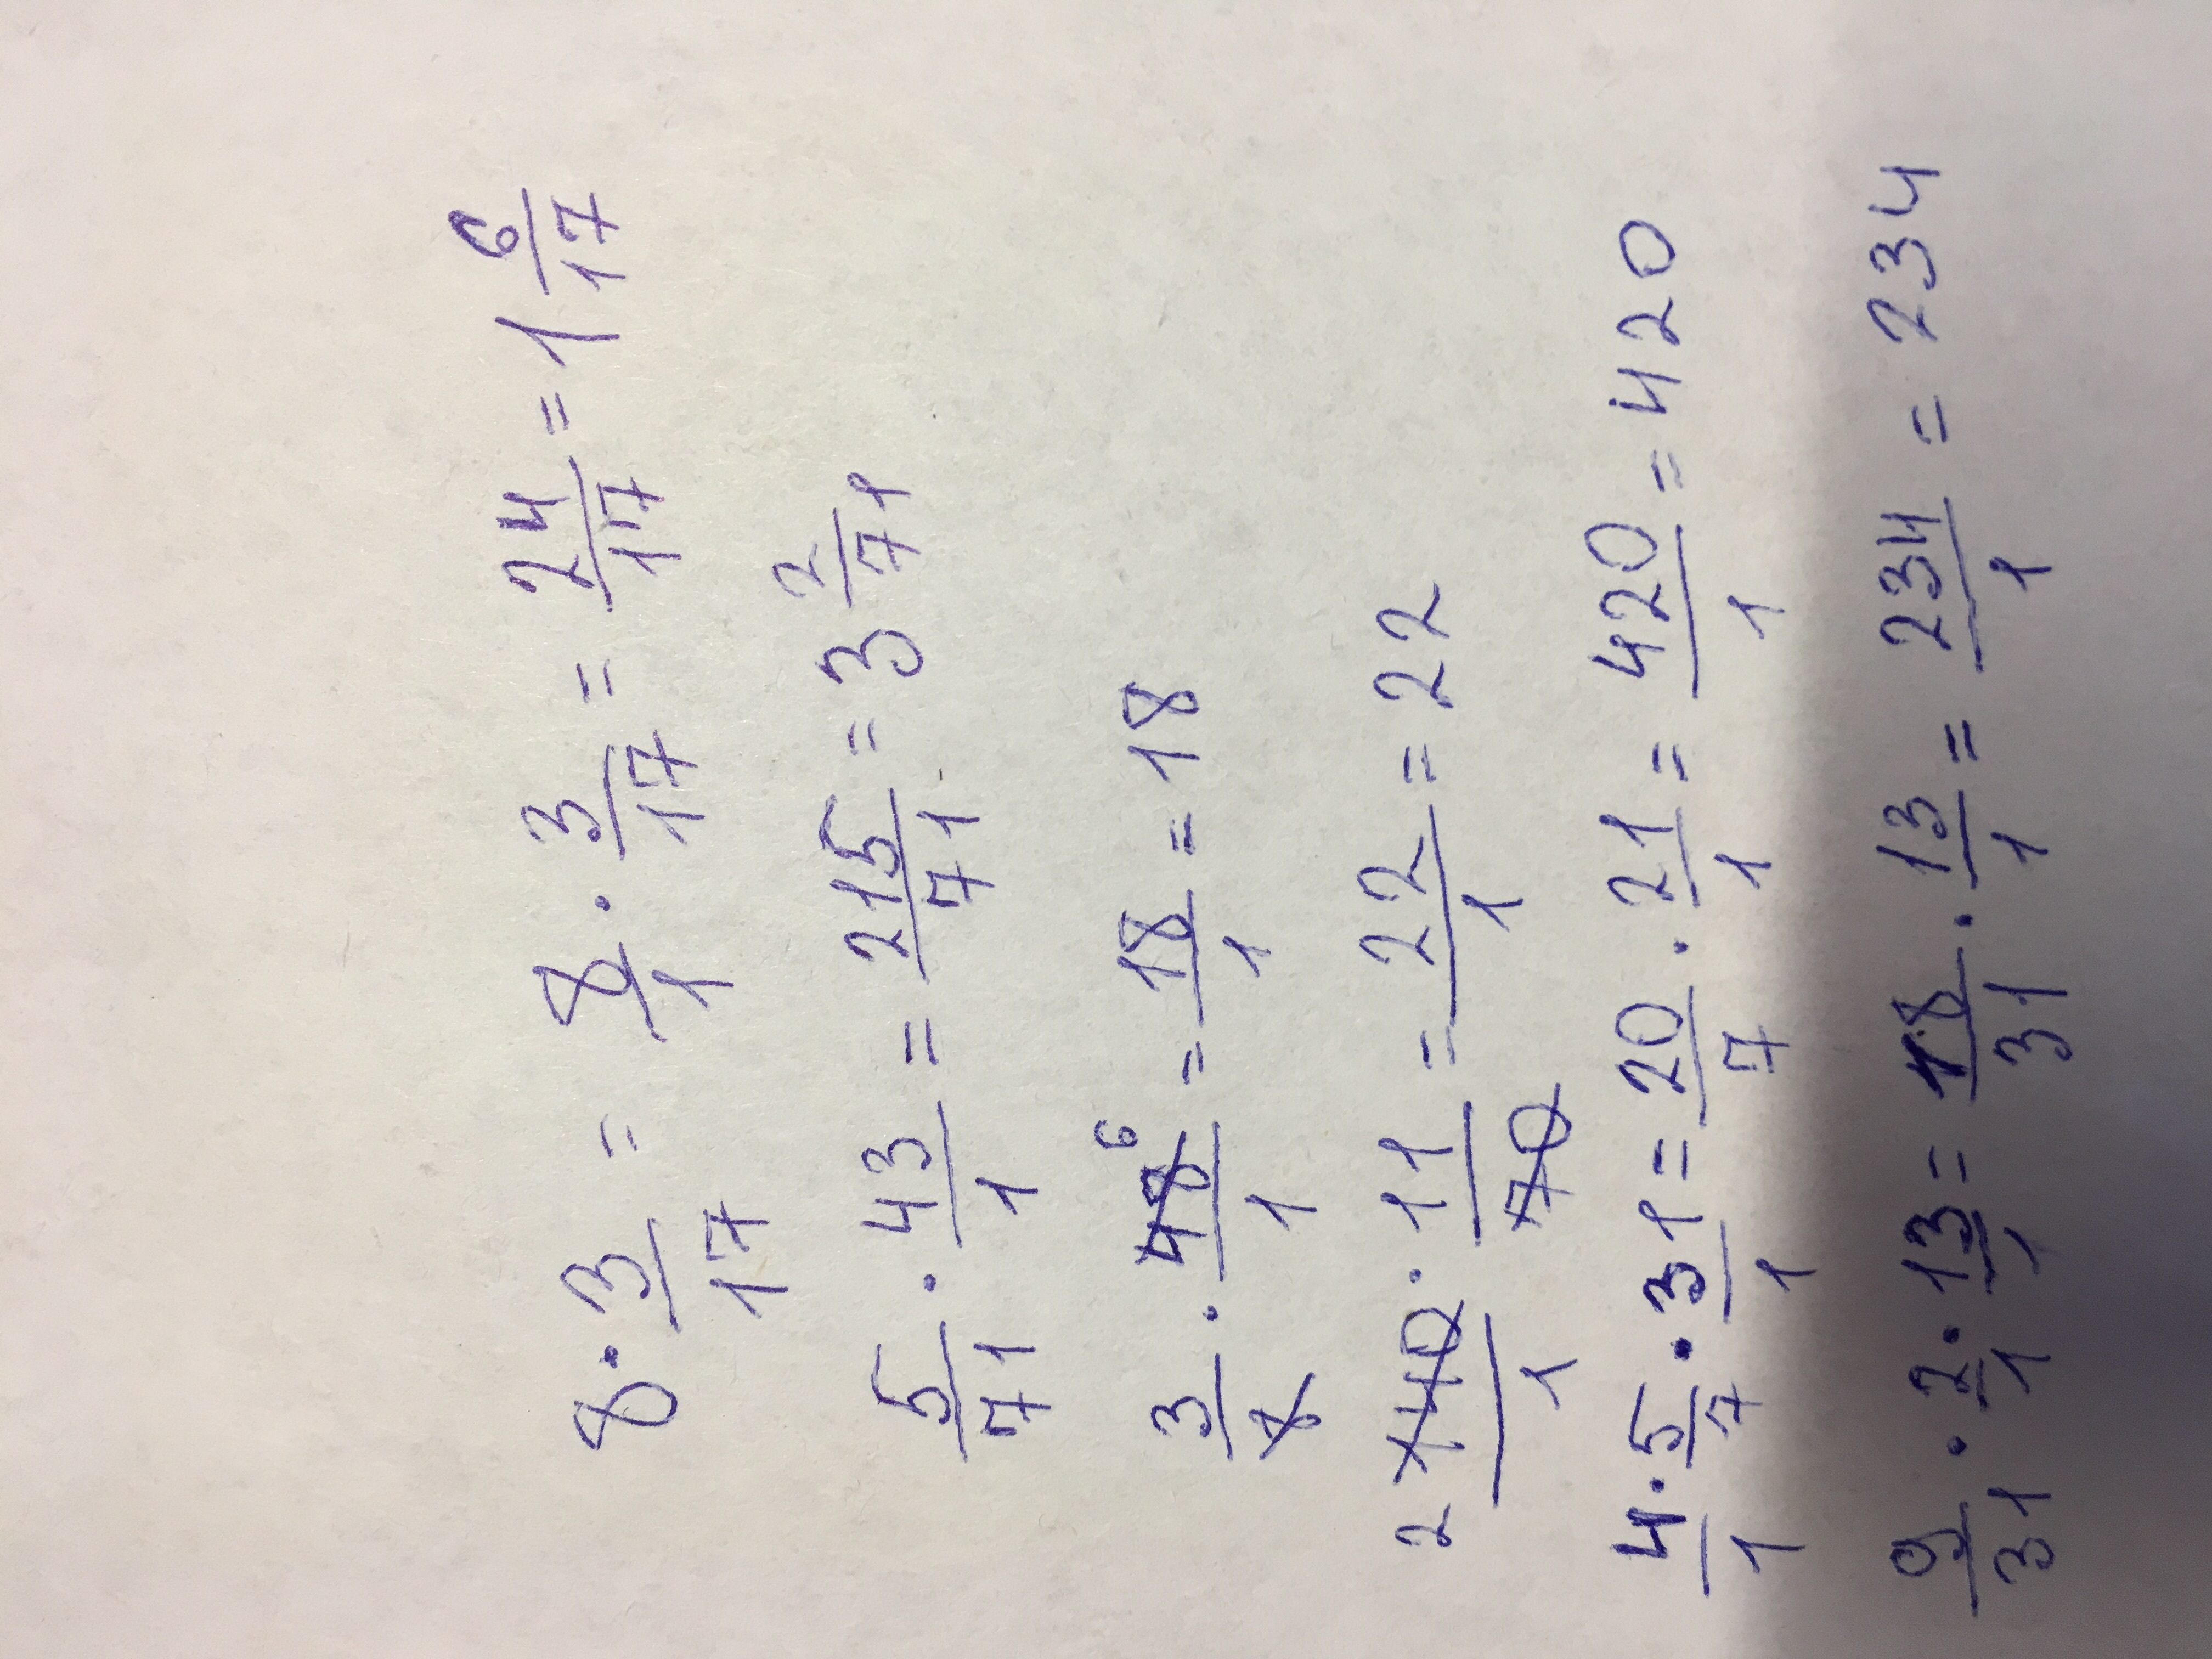 8 · 3/17 = 8/1 · 3/17 = 24/17 = 1 6/17
5/71 · 43/1 = 215/71 = 3 2/71
3/8 · 48 6/1 = 18/1 = 18
2 140/1 · 11/70 = 22/1 = 22
4/1 · 5/7 · 31/1 = 20/7 · 21/1 = 420/1 = 420
9/31 · 2/1 · 13/1 = 18/31 · 13/1 = 234/1 = 234